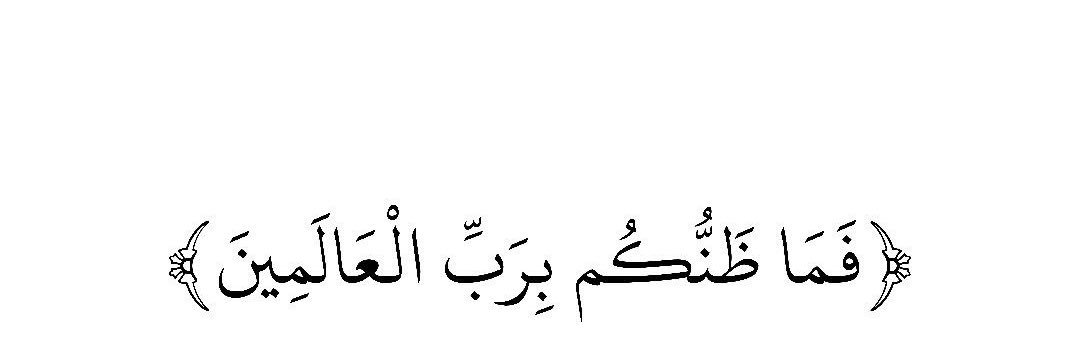 ﴿فَمَا ظَنُّكُم بِرَبِّ الْعَالَمِينَ﴾